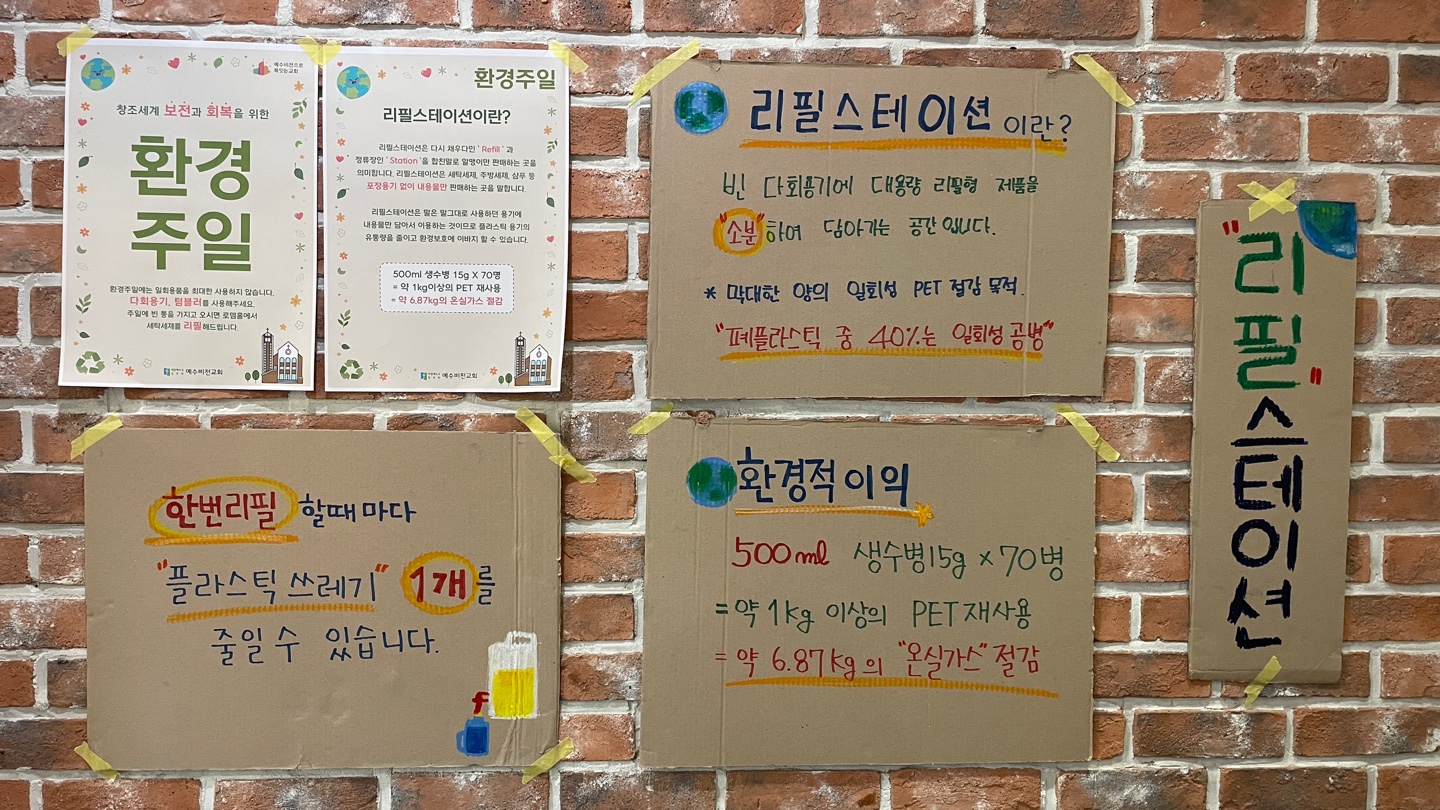 예수비전으로
복잇는교회
창조세계 보전과 회복을 위한
환경
주일
환경주일에는 일회용품을 최대한 사용하지 않습니다.
다회용기, 텀블러를 사용해주세요.
주일에 빈 통을 가지고 오시면 로뎀홈에서
세탁세제를 리필해드립니다.
예수비전교회
환경주일
리필스테이션이란?
리필스테이션은 다시 채우다인 ' Refill ' 과
정류장인 ' Station '을 합친말로 알맹이만 판매하는 곳을
의미합니다. 리필스테이션은 세탁세제, 주방세제, 샴푸 등
포장용기 없이 내용물만 판매하는 곳을 말합니다.
리필스테이션은 말은 말그대로 사용하던 용기에
내용물만 담아서 이용하는 것이므로 플라스틱 용기의
유통량을 줄이고 환경보호에 이바지 할 수 있습니다.
500ml 생수병 15g X 70명
= 약 1kg이상의 PET 재사용
= 약 6.87kg의 온실가스 절감
예수비전교회
리필스테이션이란?
빈 다회용기에 대용량 리필형 제품을
"소분"하여 담아가는 공간입니다.
* 막대한 양의 일회성 PET 절감 목적.
"폐플라스틱 중 40%는 일회성 공병"
"리필"스테이션
한번리필 할때 마다
"플라스틱 쓰레기" 1개를
줄일 수 있습니다.
환경적 이익
500ml 생수병15g × 70병
= 약 1kg 이상의 PET 재사용
= 약 6.87kg의 "온실가스" 절감